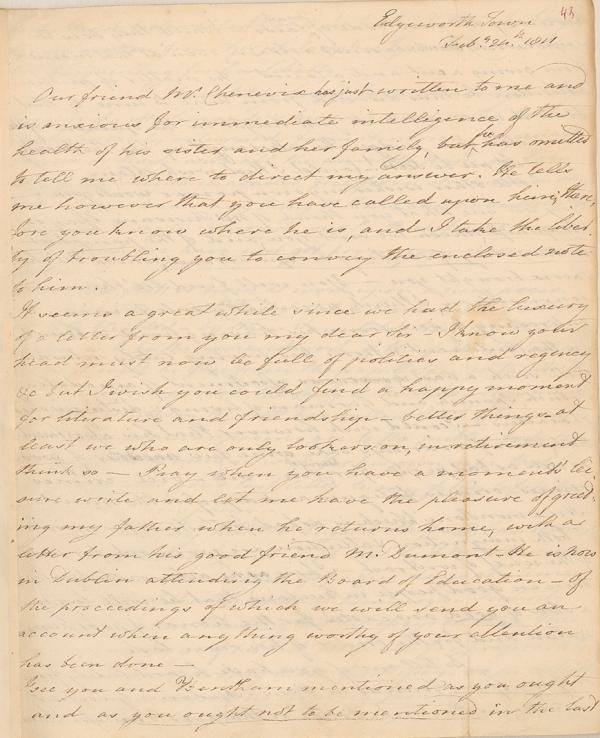 48
Edgeworth Town
Feb.y 24th 1811
Our friend Mr. Chenevix has just written to me and
is anxious for immediate intelligence of the
health of his sister and her family, but he has omitted
to tell me where to direct my answer. He tells
me however that you have called upon him; there,
fore you know where he is, and I take the liber
ty of troubling you to convey the enclosed note
to him.
It seems a great while since we had the luxury
of a letter from you my dear Sir – I know your
head must now be full of politics and regency
&c but I wish you could find a happy moment
for literature and friendship – better things – at
least we who are only lookers on, in retirement
think so – Pray when you have a moment's lei
sure write and let me have the pleasure of greet-
ing my father when he returns home, with a
letter from his good friend M. Dumont – He is now
in Dublin attending the Board of Education – Of
the proceedings of which we will send you an
account when any thing worthy of your attention
has been done –
I see you and Bentham mentioned as you ought
and as you ought not to be mentioned in the last